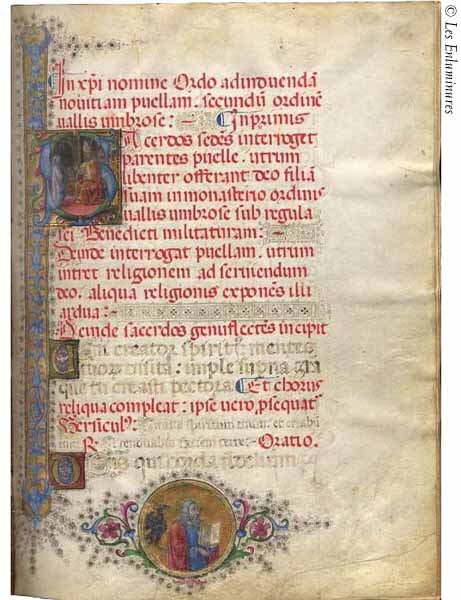 In xp̄i nomine Ordo ad induendā
nouitiam puellam. secundū ordinē
uallis umbrose: Inprimis
Sacerdos sedēs interroget
parentes puelle. utrum
libenter offerant deo filiā
suam in monasterio ordinis
uallis umbrose sub regula
sci Benedicti militaturam:
Deinde interrogat puellam. utrum
intret religionem ad seruiendum
deo. aliqua religionis exponēs illi
ardua:
Deinde sacerdos genuflectēs incipit
Veni creator spiritus mentes
tuorum uisita: imple supna gra
que tu creasti pectora Et chorus
reliqua compleat: ipse uero, psequat
Versiculū. Emitte spiritum tuum. et creabū
R. Et renouabis faciem terre. Oratio.
Deus qui corda fidelium
© Les Enluminures